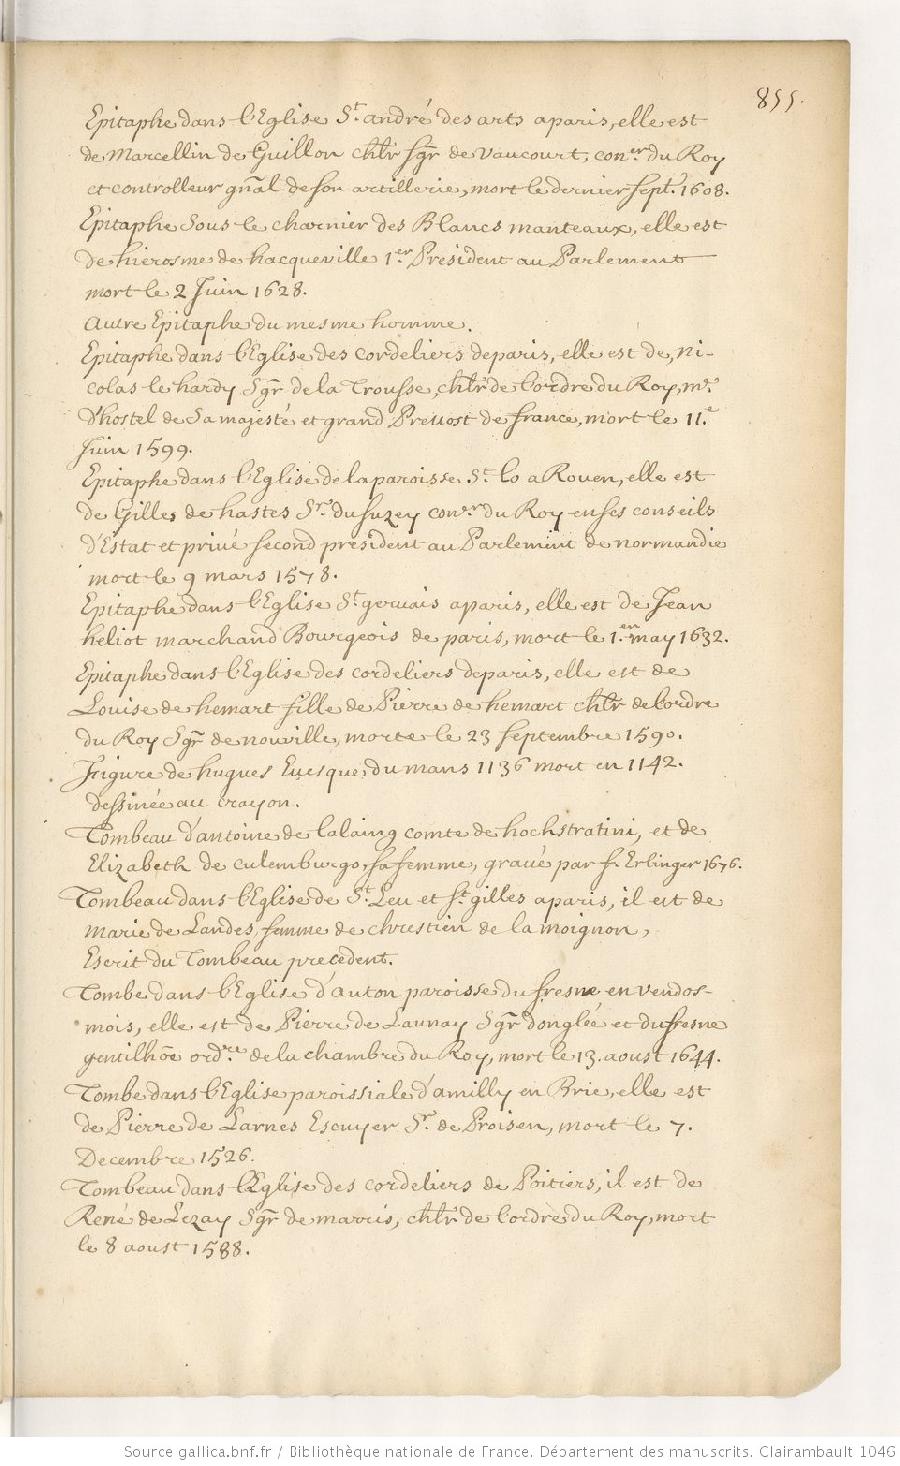 855.
Epitaphe dans l'Eglise St. andré des arts a paris, elle est
de Marcellin de Guillon chlr sgr de vaucourt, coner du Roy
et controlleur gñal de son artillerie, mort le dernier sept. 1608.
Epitaphe sous le charnier des Blancs manteaux, elle est
de hierosme de hacqueville 1er President au Parlement
mort le 2 Juin 1628.
autre Epitaphe du mesme homme.
Epitaphe dans l'Eglise des cordeliers de paris, elle est de, ni-
colas le hardy sgr de la Trousse, chlr de l'ordre du Roy, me.
d'hostel de sa majesté et grand Prevost de france, mort le 11.e
Juin 1599.
Epitaphe dans l'Eglise de la paroisse St. Lo a Rouen, elle est
de Gilles de hastes Sr. du suzey coner du Roy en ses conseils
d'Estat et privé second president au Parlement de normandie
mort le 9 mars 1578.
Epitaphe dans l'Eglise St. gervais a paris, elle est de Jean
heliot marchand Bourgeois de paris, mort le 1.er may 1632.
Epitaphe dans l'Eglise des cordeliers de paris, elle est de
Louise de hemart fille de Pierre de hemart chlr de l'ordre
du Roy sgr de nouville, morte le 23 septembre 1590.
figure de hugues Evesque, du mans 1136 mort en 1142.
dessinée au crayon.
Tombeau d'antoine de lalaing comte de hochstratini, et de
Elizabeth de culemburgo, sa femme, gravé par f. Erlinger 1676.
Tombeau dans l'Eglise de St. Leu et st. gilles a paris, il est de
marie de Landes, femme de chrestien de la moignon,
Escrit du Tombeau precedent.
Tombe dans l'Eglise d'auton paroisse du fresne en vendos-
mois, elle est de Pierre de Launay sgr d'onglée et du fresne
gentilhõe ordre. de la chambre du Roy, mort le 13. aoust 1644.
Tombe dans l'Eglise paroissiale d'amilly en Brie, elle est
de Pierre de Larnes Escuyer Sr. de Proisen, mort le 7.
Decembre 1526.
Tombeau dans l'Eglise des cordeliers de Poitiers, il est de
René de Lezay sgr de marris, chlr de l'ordre du Roy, mort
le 8 aoust 1588.
Source gallica.bnf.fr / Bibliothèque nationale de France. Département des manuscrits. Clairambault 1046